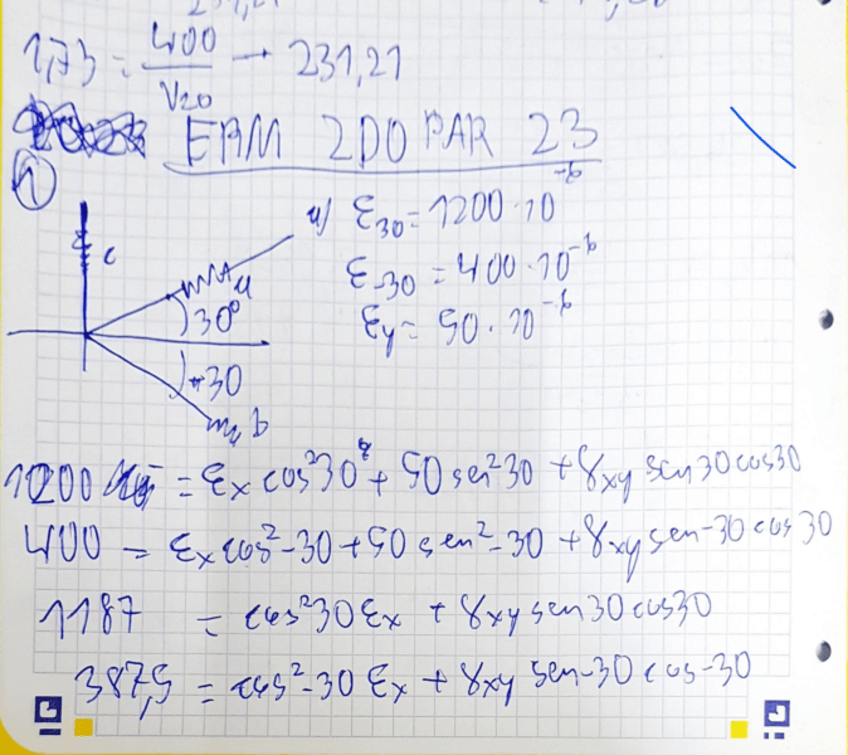 1,73 = 400 / V20 → 231,21
ERM 2DO PAR 23
1
a) ε30 = 1200 · 10^-6
ε-30 = 400 · 10^-6
εy = 50 · 10^-6
c
a
30°
-30
b
1200 = εx cos²30 + 50 sen²30 + γxy sen 30 cos 30
400 = εx cos²-30 + 50 sen²-30 + γxy sen-30 cos 30
1187 = cos²30 εx + γxy sen 30 cos 30
387,5 = cos²-30 εx + γxy sen-30 cos-30